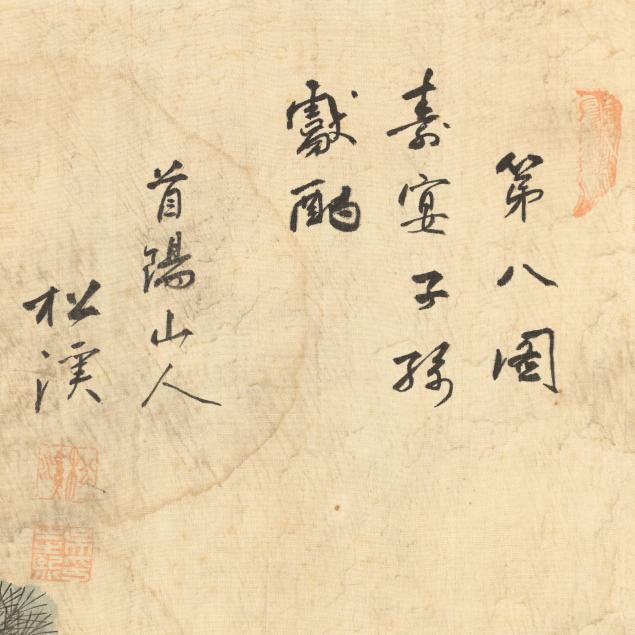 第八圖
壽宴子孫
獻酌
首陽山人
松溪
松溪